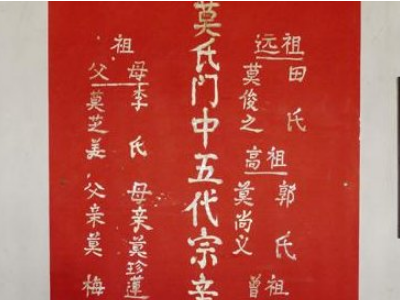 远祖
田氏
莫俊之
高祖
郭氏
莫尚义
曾祖
莫氏门中五代宗亲
祖
母李氏 母亲莫珍莲
父莫芝美 父亲莫梅